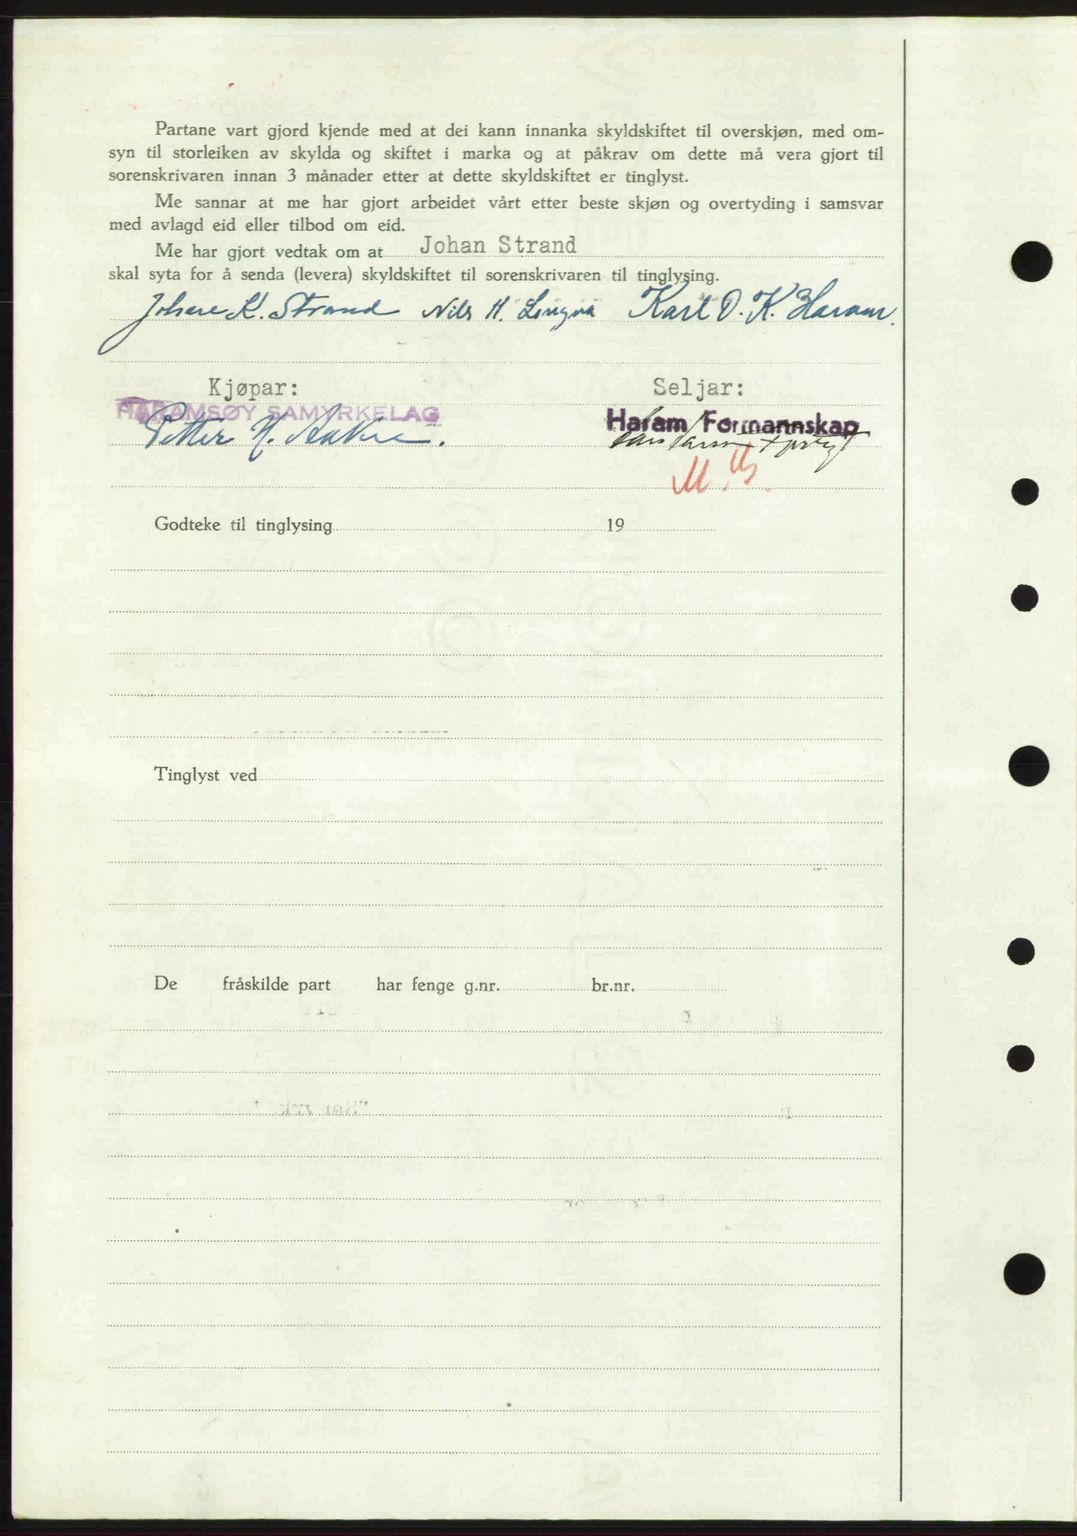 Partane vart gjord kjende med at dei kann innanka skyldskiftet til overskjøn, med om-
syn til storleiken av skylda og skiftet i marka og at påkrav om dette må vera gjort til
sorenskrivaren innan 3 månader etter at dette skyldskiftet er tinglyst.
Me sannar at me har gjort arbeidet vårt etter beste skjøn og overtyding i samsvar
med avlagd eid eller tilbod om eid.
Me har gjort vedtak om at Johan Strand
skal syta for å senda (levera) skyldskiftet til sorenskrivaren til tinglysing.
Johan K. Strand Nils H. Longva Karl O. K. Haram.
Kjøpar: Seljar:
HARAMSØY SAMYRKELAG Haram Formannskap
Petter H.
Godteke til tinglysing 19
Tinglyst ved
De fråskilde part har fenge g.nr. br.nr.